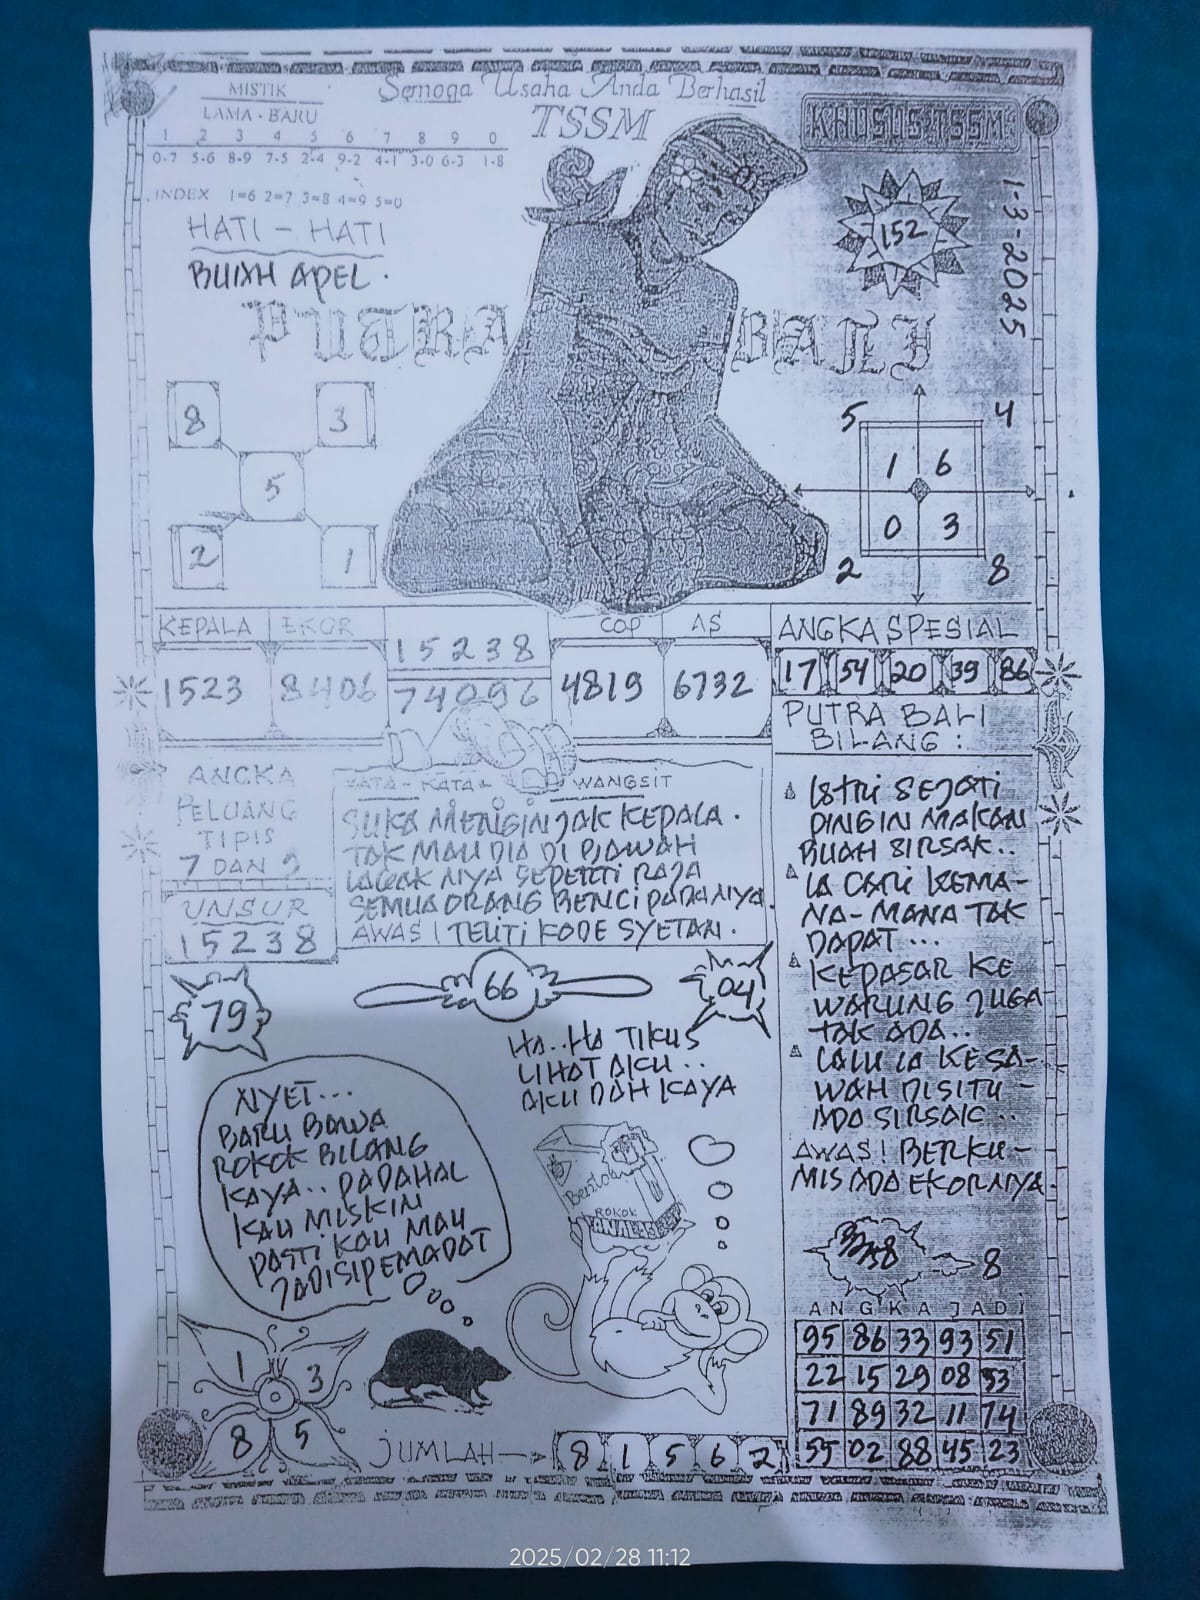 MISTIK
LAMA - BARU
1 2 3 4 5 6 7 8 9 0
0-7 5-6 8-9 7-5 2-4 9-2 4-1 3-0 6-3 1-8
INDEX 1=6 2=7 3=8 4=9 5=0
Semoga Usaha Anda Berhasil
TSSM
KHUSUS TSSM
1-3-2025
152
HATI - HATI
BUAH APEL.
PUTRA BALI
8 3
5
2 1
5 4
1 6
0 3
2 8
KEPALA EKOR
1523 8406
15238
74096
COP AS
4819 6732
ANGKA SPESIAL
17 54 20 39 86
PUTRA BALI
BILANG :
ISTRI SEJATI
PINGIN MAKAN
BUAH SIRSAK..
IA CARI KEMA-
NA-MANA TAK
DAPAT...
KEPASAR KE
WARUNG JUGA
TAK ADA..
LALU IA KESA-
WAH DISITU -
ADA SIRSAK..
AWAS! BERKU-
MIS ADA EKORNYA.
ANGKA
PELUANG
TIPIS
7 DAN 9
UNSUR
15238
KATA - KATA WANGSIT
SUKA MENGINJAK KEPALA.
TAK MAU DIA DI BAWAH
LAGAK NYA SEPERTI RAJA
SEMUA ORANG BENCI PADANYA.
AWAS! TELITI KODE SYETAN.
79 66 04
HA..HA TIKUS
LIHAT AKU..
AKU DAH KAYA
NYET...
BARU BAWA
ROKOK BILANG
KAYA.. PADAHAL
KAU MISKIN
PASTI KAU MAU
JADI SI PEMADAT
Bentoel
ROKOK
8
ANGKA JADI
95 86 33 93 51
22 15 29 08 53
71 89 32 11 74
55 02 88 45 23
1 3
8 5
JUMLAH
8 1 5 6 2
2025/02/28 11:12